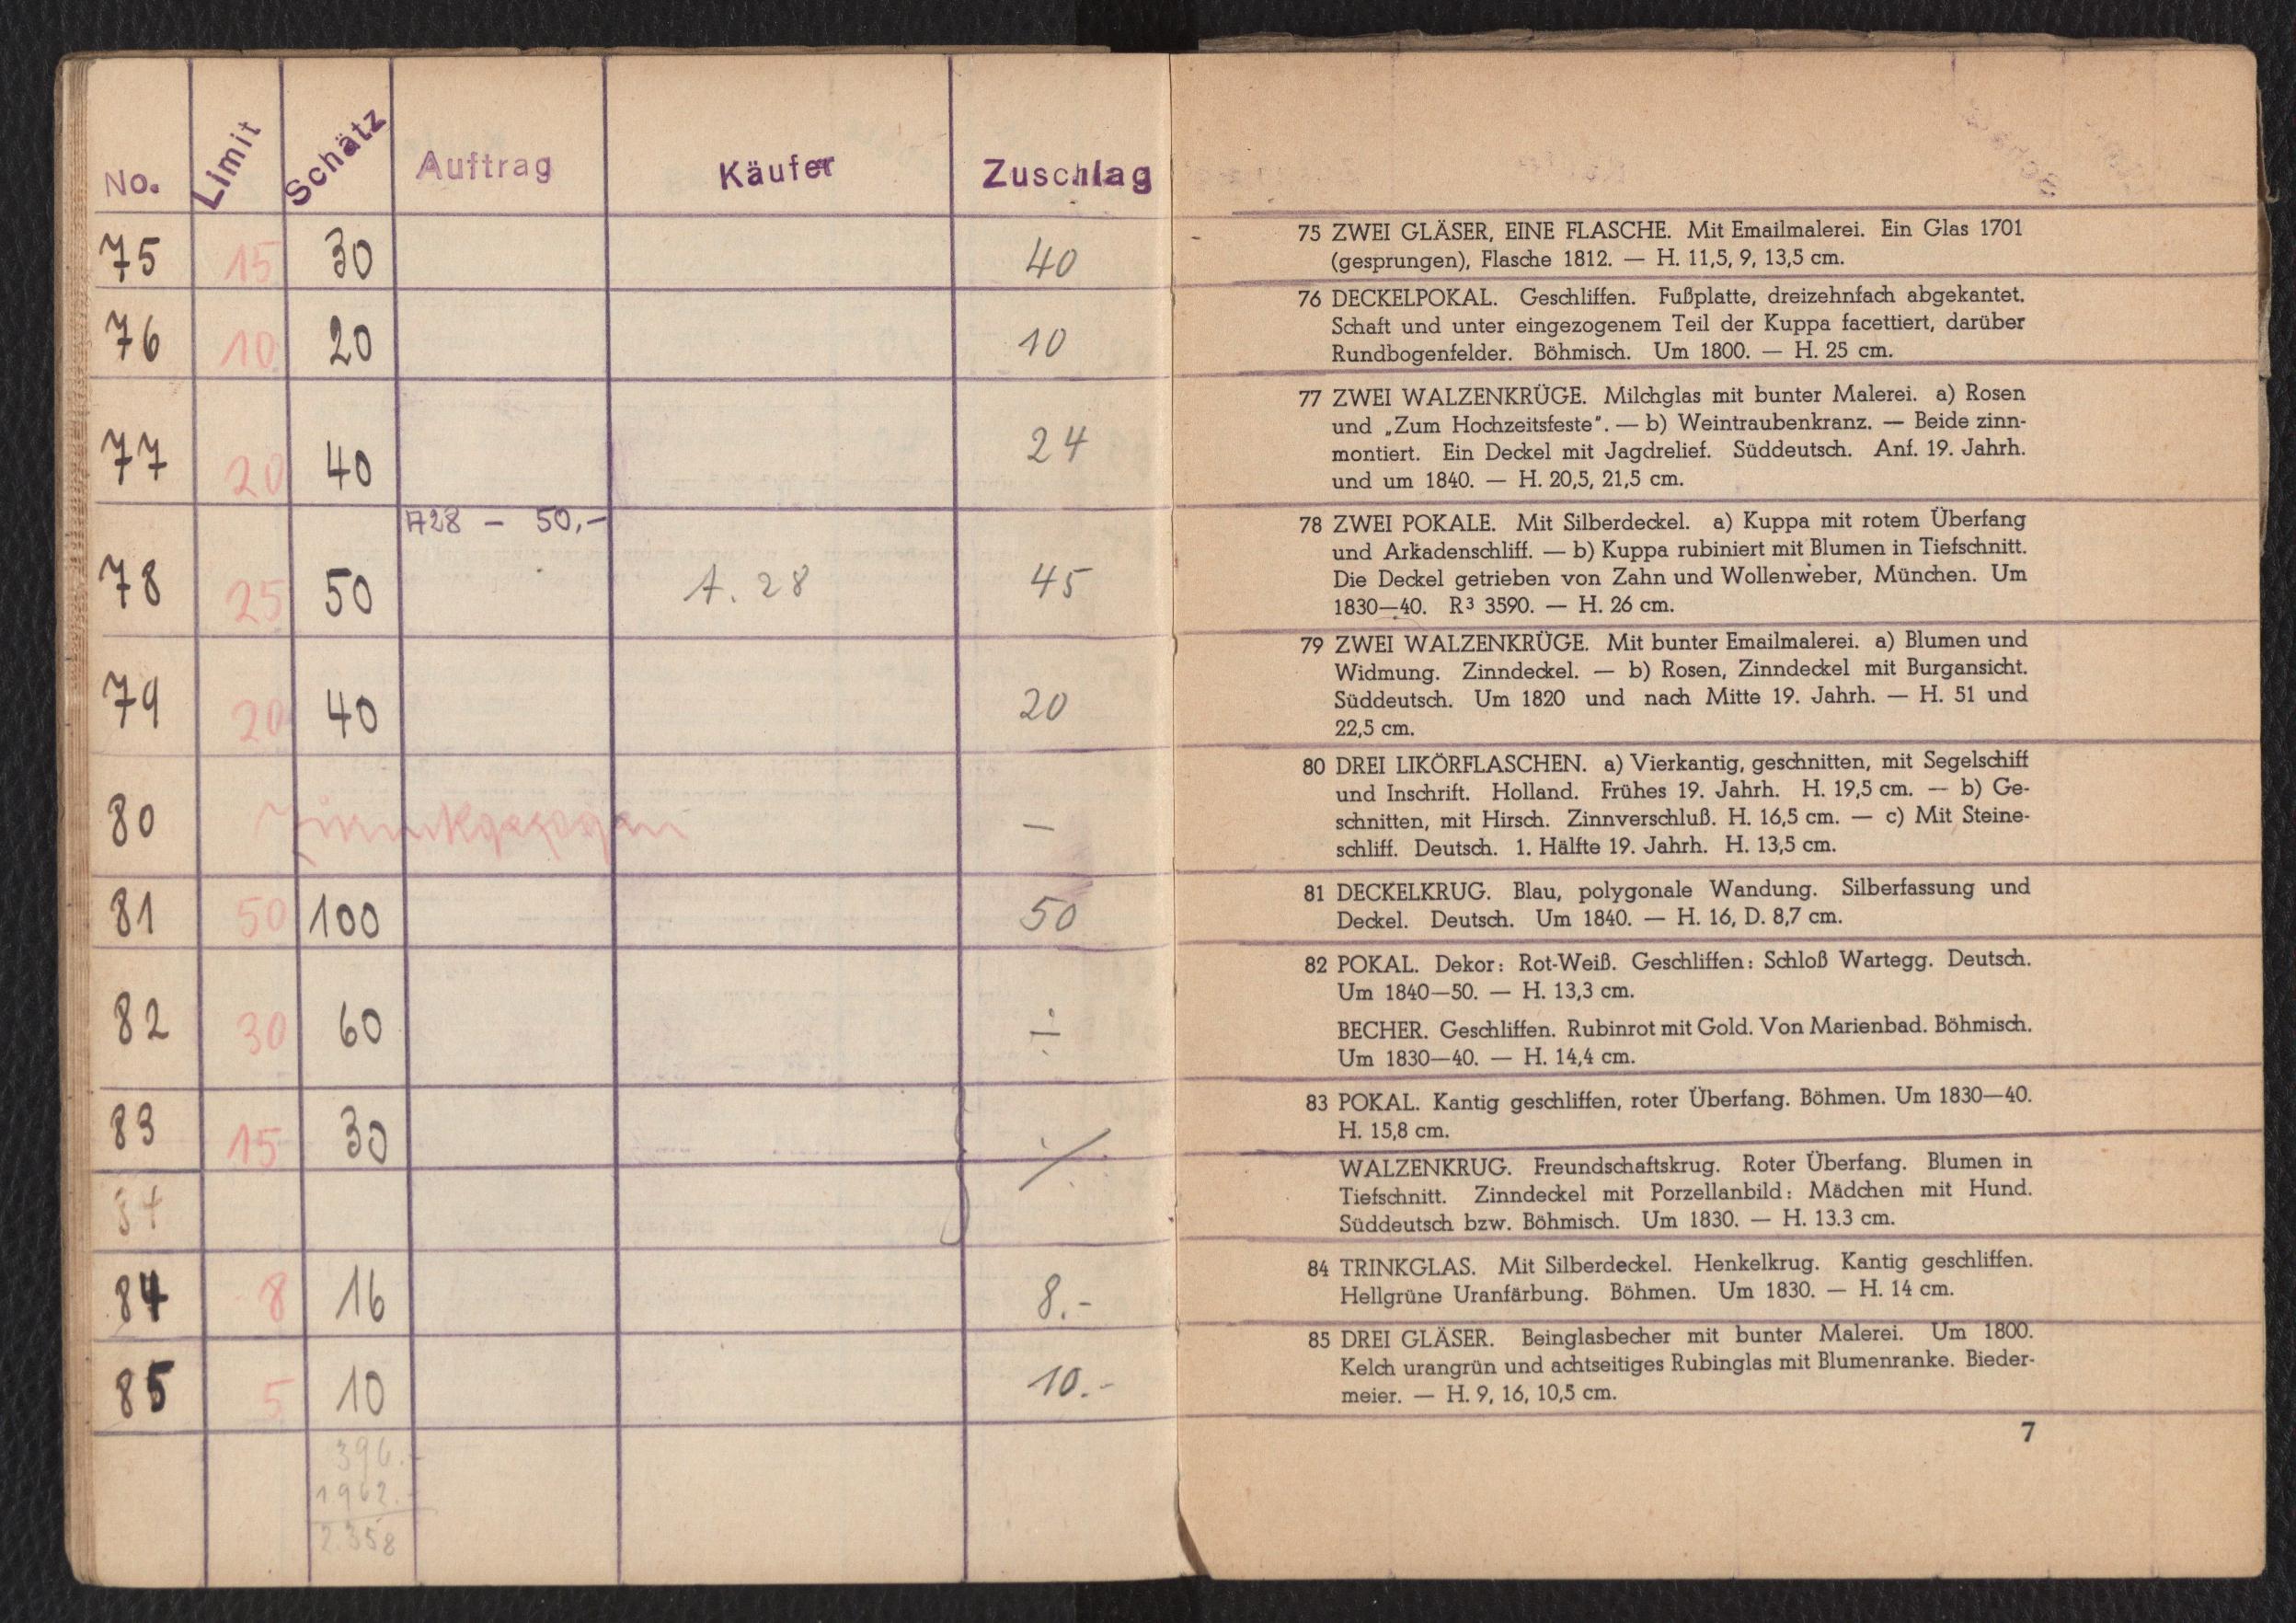 No. Limit Schätz Auftrag Käufer Zuschlag
75 15 30 40
76 10 20 10
77 20 40 24
A28 – 50,–
78 25 50 A. 28 45
79 20 40 20
80 Zurückgezogen —
81 50 100 50
82 30 60 ÷
83 15 30 ·/.
84
84 8 16 8.-
85 5 10 10.-
396.-
1962.-
2.358
75 ZWEI GLÄSER, EINE FLASCHE. Mit Emailmalerei. Ein Glas 1701
(gesprungen), Flasche 1812. — H. 11,5, 9, 13,5 cm.
76 DECKELPOKAL. Geschliffen. Fußplatte, dreizehnfach abgekantet.
Schaft und unter eingezogenem Teil der Kuppa facettiert, darüber
Rundbogenfelder. Böhmisch. Um 1800. — H. 25 cm.
77 ZWEI WALZENKRÜGE. Milchglas mit bunter Malerei. a) Rosen
und „Zum Hochzeitsfeste". — b) Weintraubenkranz. — Beide zinn-
montiert. Ein Deckel mit Jagdrelief. Süddeutsch. Anf. 19. Jahrh.
und um 1840. — H. 20,5, 21,5 cm.
78 ZWEI POKALE. Mit Silberdeckel. a) Kuppa mit rotem Überfang
und Arkadenschliff. — b) Kuppa rubiniert mit Blumen in Tiefschnitt.
Die Deckel getrieben von Zahn und Wollenweber, München. Um
1830—40. R³ 3590. — H. 26 cm.
79 ZWEI WALZENKRÜGE. Mit bunter Emailmalerei. a) Blumen und
Widmung. Zinndeckel. — b) Rosen, Zinndeckel mit Burgansicht.
Süddeutsch. Um 1820 und nach Mitte 19. Jahrh. — H. 51 und
22,5 cm.
80 DREI LIKÖRFLASCHEN. a) Vierkantig, geschnitten, mit Segelschiff
und Inschrift. Holland. Frühes 19. Jahrh. H. 19,5 cm. — b) Ge-
schnitten, mit Hirsch. Zinnverschluß. H. 16,5 cm. — c) Mit Steine-
schliff. Deutsch. 1. Hälfte 19. Jahrh. H. 13,5 cm.
81 DECKELKRUG. Blau, polygonale Wandung. Silberfassung und
Deckel. Deutsch. Um 1840. — H. 16, D. 8,7 cm.
82 POKAL. Dekor: Rot-Weiß. Geschliffen: Schloß Wartegg. Deutsch.
Um 1840—50. — H. 13,3 cm.
BECHER. Geschliffen. Rubinrot mit Gold. Von Marienbad. Böhmisch.
Um 1830—40. — H. 14,4 cm.
83 POKAL. Kantig geschliffen, roter Überfang. Böhmen. Um 1830—40.
H. 15,8 cm.
WALZENKRUG. Freundschaftskrug. Roter Überfang. Blumen in
Tiefschnitt. Zinndeckel mit Porzellanbild: Mädchen mit Hund.
Süddeutsch bzw. Böhmisch. Um 1830. — H. 13.3 cm.
84 TRINKGLAS. Mit Silberdeckel. Henkelkrug. Kantig geschliffen.
Hellgrüne Uranfärbung. Böhmen. Um 1830. — H. 14 cm.
85 DREI GLÄSER. Beinglasbecher mit bunter Malerei. Um 1800.
Kelch urangrün und achtseitiges Rubinglas mit Blumenranke. Bieder-
meier. — H. 9, 16, 10,5 cm.
7